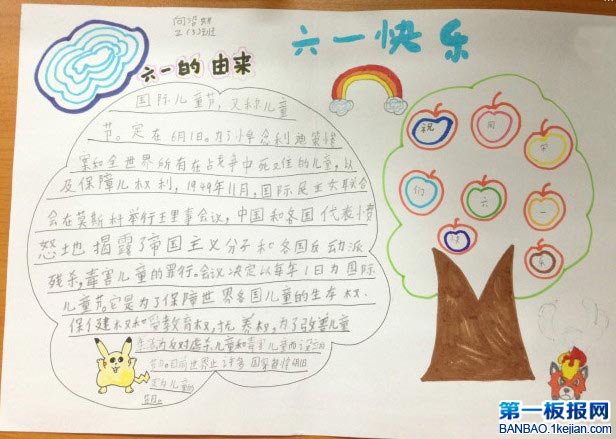 2(3)班
六一快乐
六一的由来
国际儿童节,又称儿童
节。定在6月1日。为了悼念利迪策惨
案和全世界所有在战争中死难的儿童,以
及保障儿权利,1949年11月,国际民主妇联合
会在莫斯科举行理事会议,中国和各国代表愤
怒地揭露了帝国主义分子和各国反动派
残杀,毒害儿童的罪行。会议决定以每年1日为国际
儿童节。它是为了保障世界各国儿童的生存权、
保健权和受教育权,抚养权,为了改善儿童
生活为反对虐杀儿童和毒害儿童而
节日。目前世界上许多国家都将
定为儿童的
节日。
祝 同 学
们 六 一
快 乐
第一板报网
BANBAO.1kejian.com